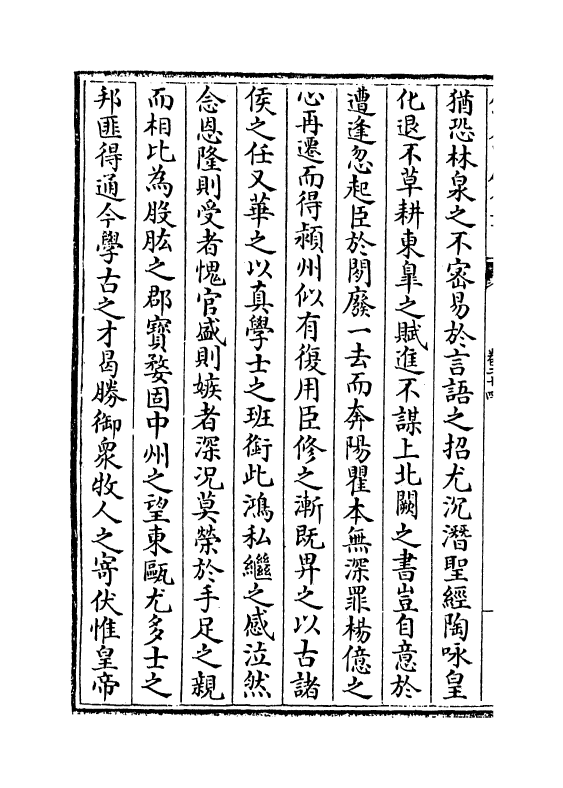 猶恐林泉之不密易於言語之招尤沉潛聖經陶咏皇
化退不草耕東臯之賦進不謀上北闕之書豈自意於
遭逢忽起臣於閑廢一去而奔陽瞿本無深罪楊億之
心再遷而得潁州似有復用臣修之漸既畀之以古諸
侯之任又華之以真學士之班銜此鴻私繼之感泣然
念恩隆則受者愧官盛則嫉者深况莫榮於手足之親
而相比為股肱之郡寳婺固中州之望東甌尤多士之
邦匪得通今學古之才曷勝御衆牧人之寄伏惟皇帝
卷二十四